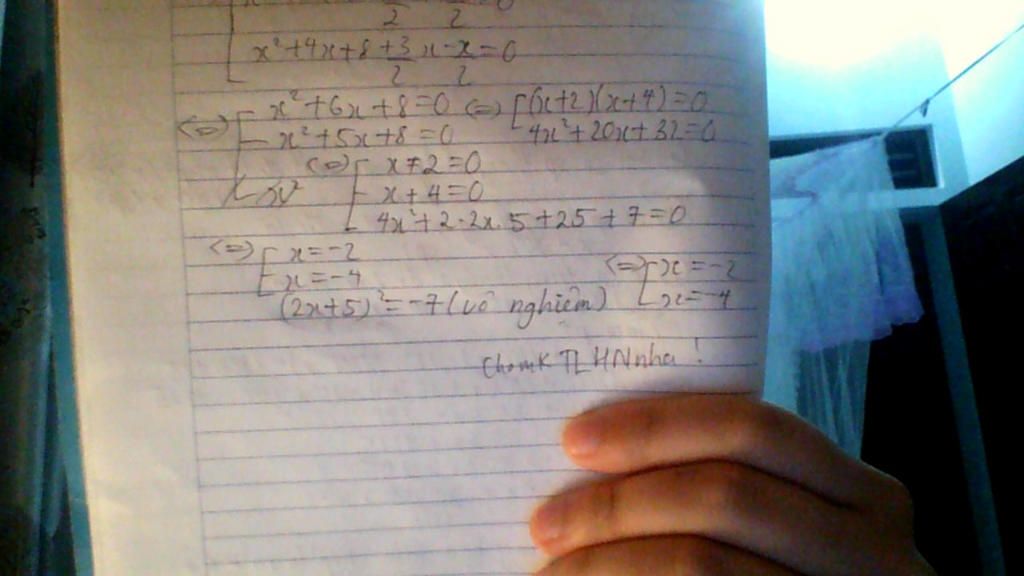 2 2 0
x² + 4x + 8 + 3x/2 - x/2 = 0
<=> [ x² + 6x + 8 = 0 <=> [ (x+2)(x+4) = 0
x² + 5x + 8 = 0 4x² + 20x + 32 = 0
<=> [ x+2 = 0
x + 4 = 0
4x² + 2.2x.5 + 25 + 7 = 0
<=> [ x = -2
x = -4 <=> [ x = -2
(2x+5)² = -7 (vô nghiệm) x = -4
Cho mk TLHN nha !